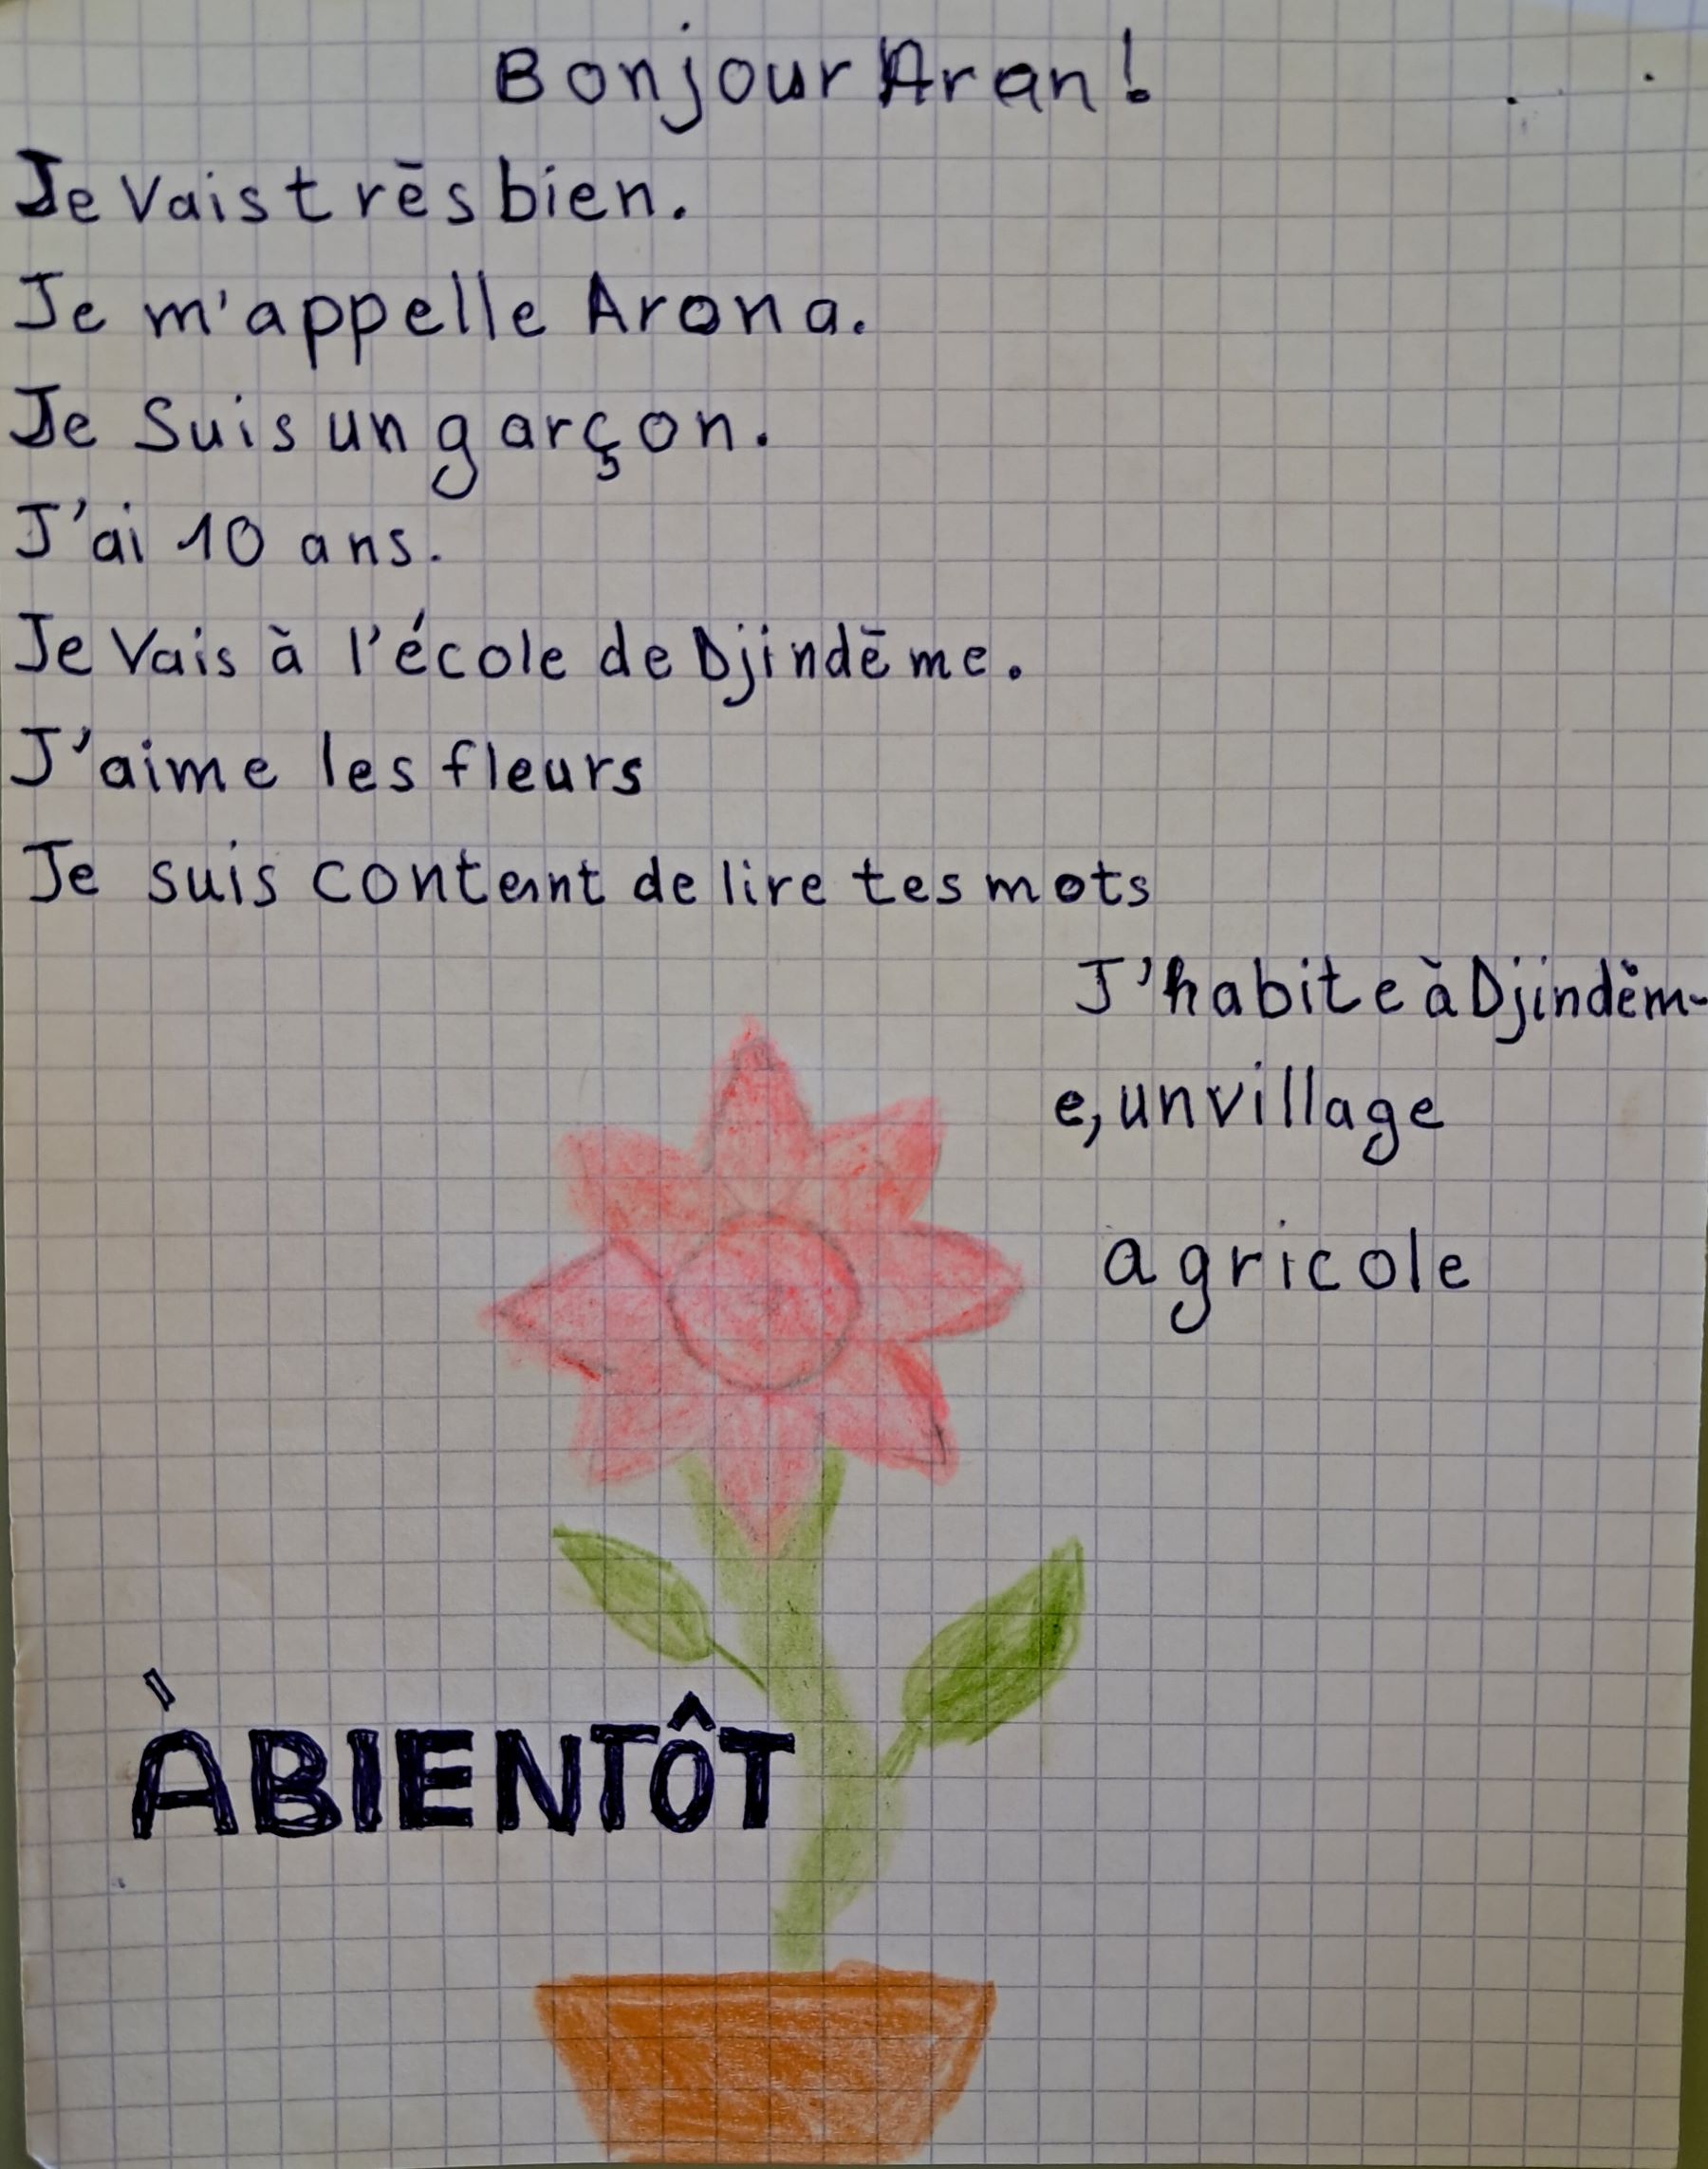 Bonjour Aran!
Je Vais trēs bien.
Je m'appelle Arona.
Je Suis un garçon.
J'ai 10 ans.
Je Vais à l'école de Djindēme.
J'aime les fleurs
Je suis content de lire tes mots
J'habite à Djindèm-
e, un village
agricole
À BIENTÔT